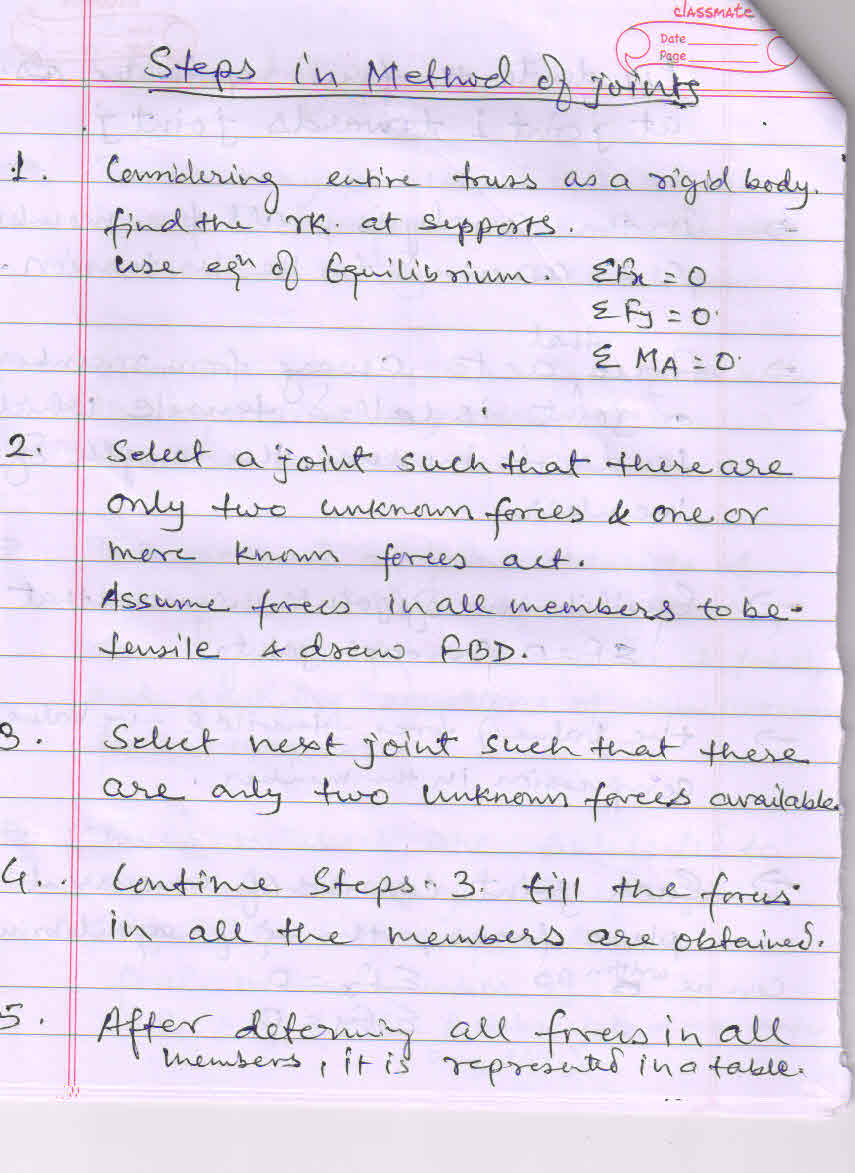 classmate
Date
Page
Steps in Method of joints
1. Considering entire truss as a rigid body.
find the rk. at sepports.
use eqn of Equilibrium. ΣFx = 0
ΣFy = 0
Σ MA = 0
2. Select a joint such that there are
only two unknown forces & one or
more known forces act.
Assume forces in all members to be
tensile & draw FBD.
3. Select next joint such that these
are only two unknown forces available.
4. Continue Steps 3. till the forces
in all the members are obtained.
5. After determing all forces in all
members, it is represented in a table.